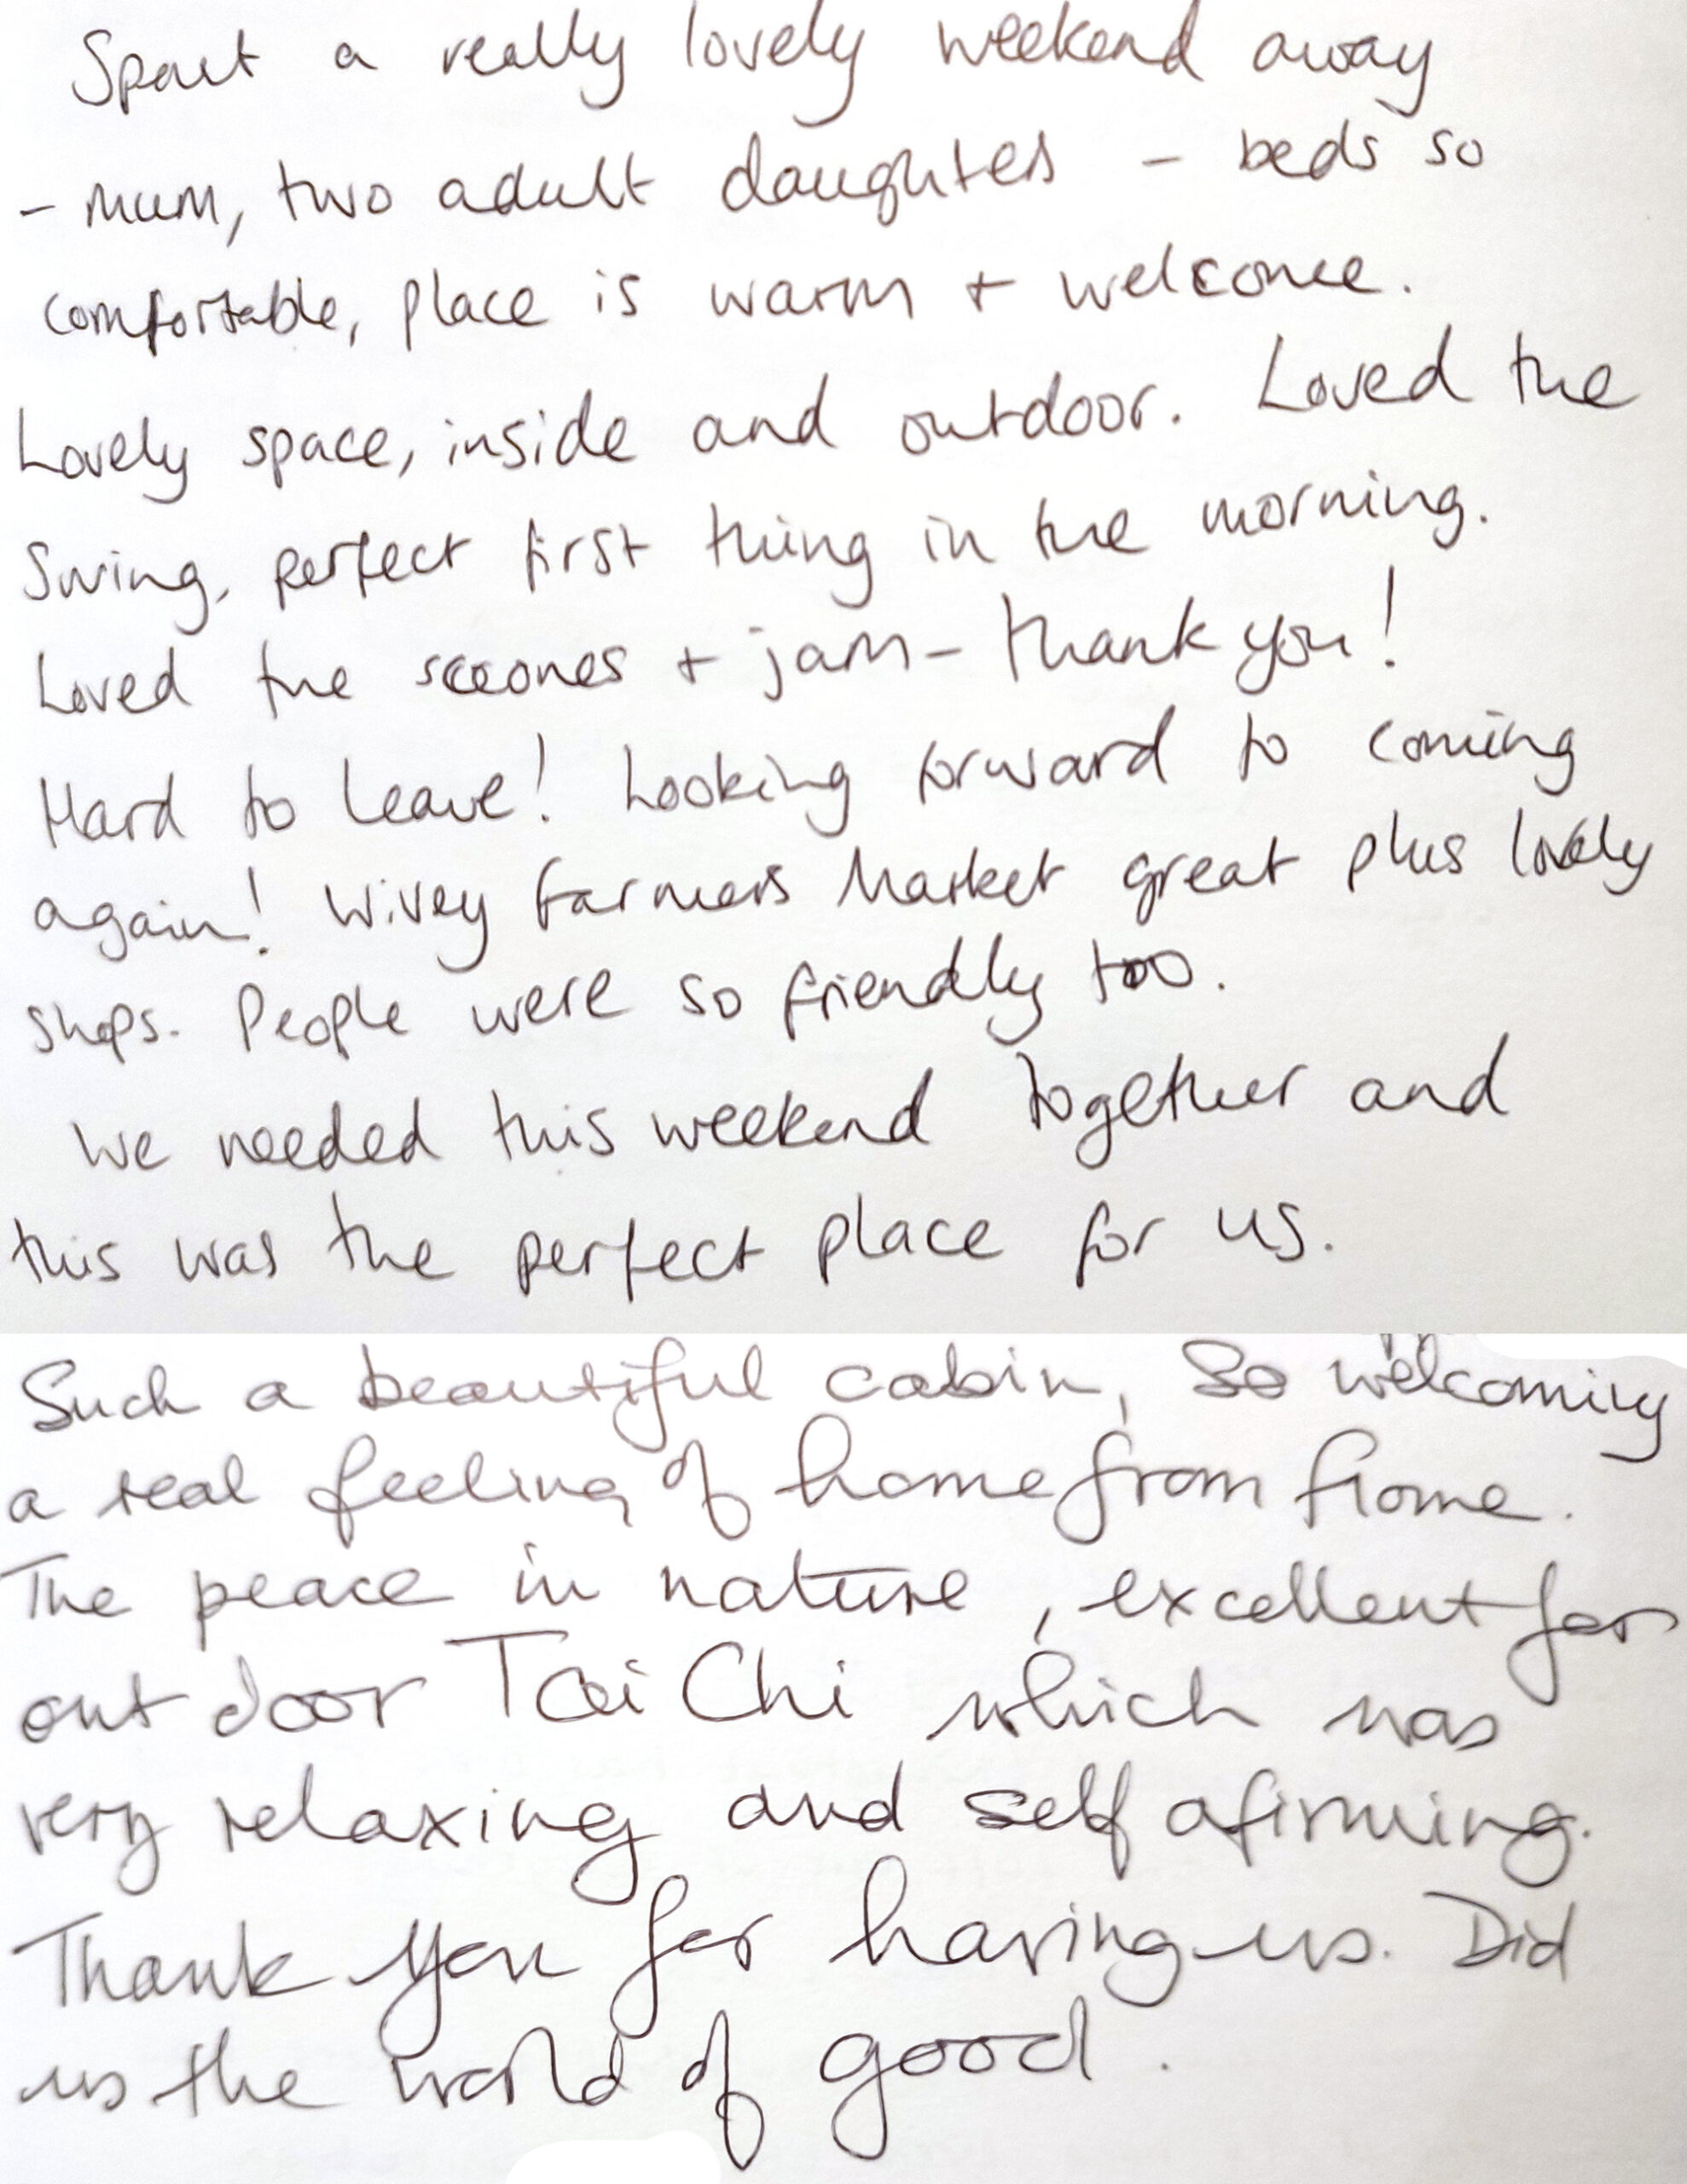 Spent a really lovely weekend away
- mum, two adult daughters - beds so
comfortable, place is warm + welcome.
Lovely space, inside and outdoor. Loved the
Swing, perfect first thing in the morning.
Loved the sceones + jam - thank you!
Hard to leave! Looking forward to coming
again! Wivey Farmers Market great plus lovely
shops. People were so friendly too.
We needed this weekend together and
this was the perfect place for us.
Such a beautiful cabin, So welcoming
a real feeling of home from frome.
The peace in nature, excellent for
out door Tai Chi which was
very relaxing and self afirming.
Thank you for having us. Did
us the world of good.